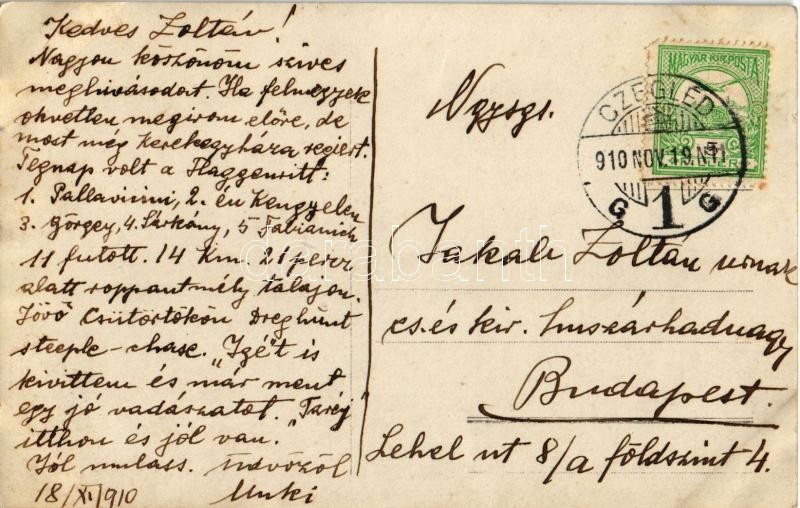 Kedves Zoltán!
Nagyon köszönöm szives
meghivásodat. Ha felmegyek
okvetlen megirom előre, de
most még Kerekegyháza rejiert.
Tegnap volt a Flaggenritt:
1. Pallavicini, 2. én Kengyelen
3. Görgey, 4. Sárkány, 5 Fabianich
11 futott. 14 km. 21 perz
alatt roppant mély talajon.
Jövő Csütörtökön Draghunt
steeple-chase. "Izé"t is
kivittem és már ment
egy jó vadászatot. "Taréj"
itthon és jól van.
Jól mulass. Üdvözöl
18/XI/910 Muki
Ngysgs.
Jakab Zoltán urnak
cs. és kir. huszárhadnagy
Budapest.
Lehel ut 8/a földszint 4.
MAGYAR KIR. POSTA
CZEGLÉD
910 NOV. 19. N11
G 1 G
5
darabanth